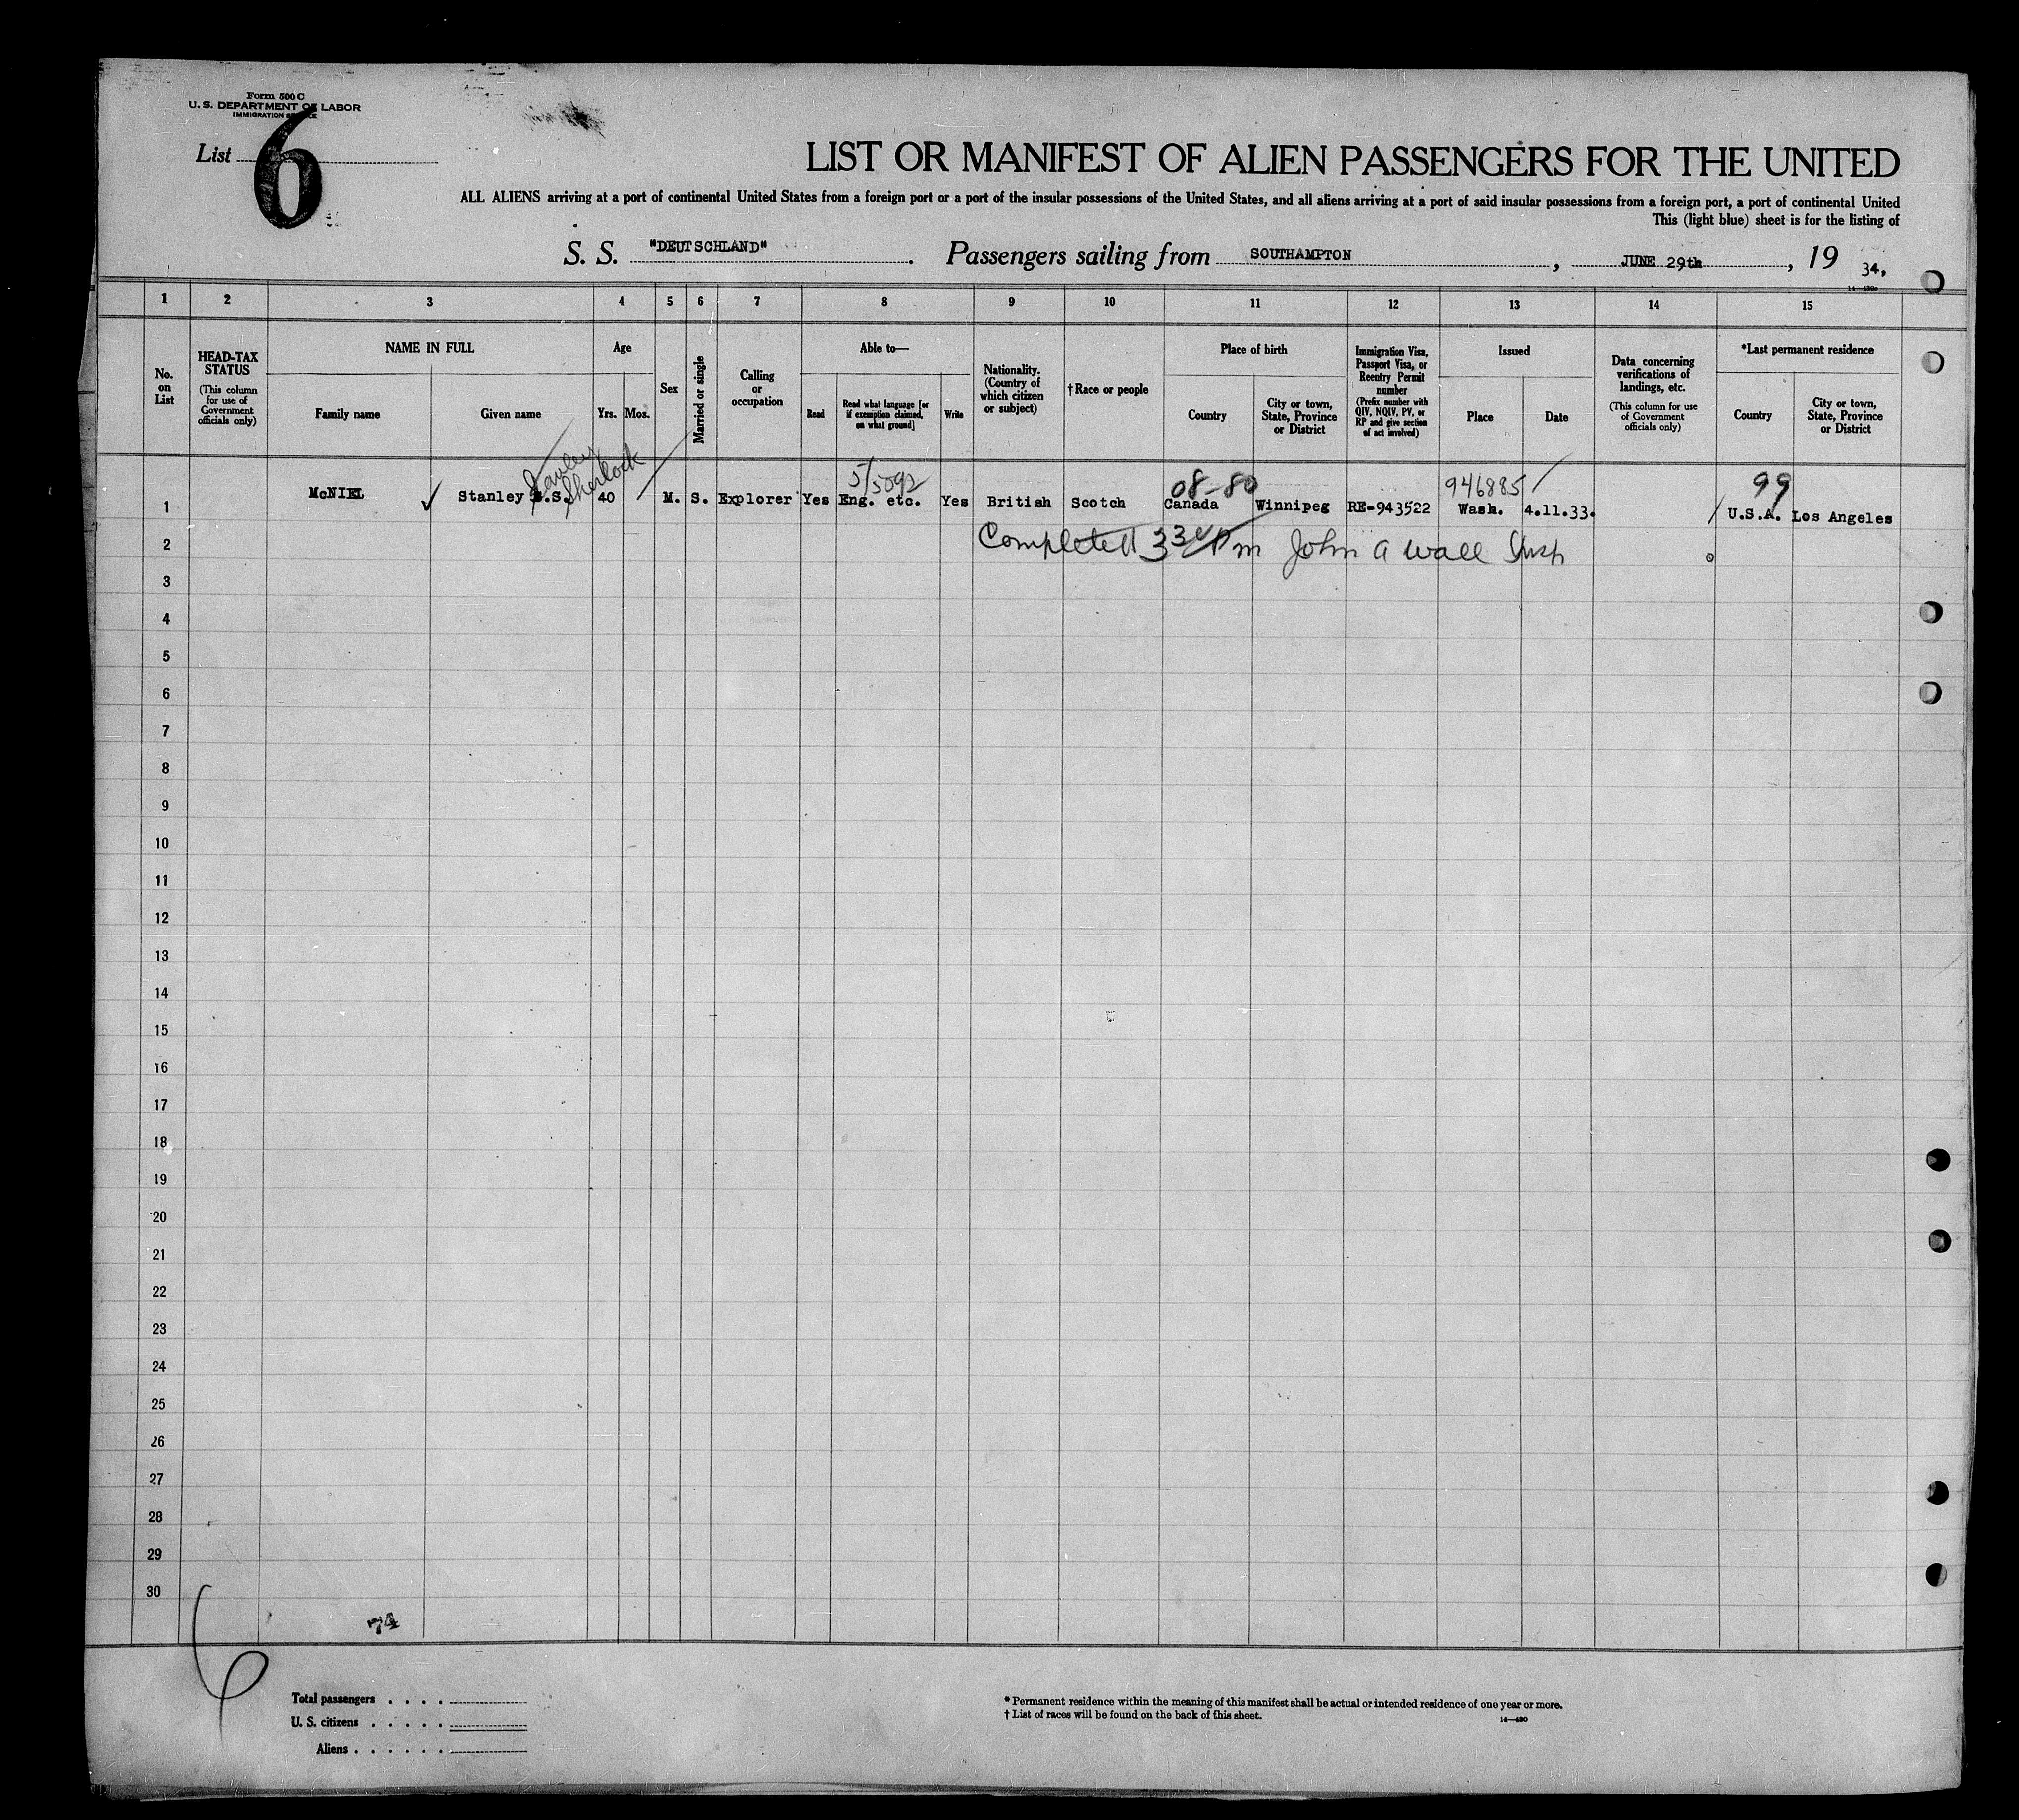 Form 500 C
U. S. DEPARTMENT OF LABOR
IMMIGRATION SERVICE
List 6
LIST OR MANIFEST OF ALIEN PASSENGERS FOR THE UNITED
ALL ALIENS arriving at a port of continental United States from a foreign port or a port of the insular possessions of the United States, and all aliens arriving at a port of said insular possessions from a foreign port, a port of continental United
This (light blue) sheet is for the listing of
S. S. "DEUTSCHLAND". Passengers sailing from SOUTHAMPTON, JUNE 29th, 19 34,
14—430c
1 2 3 4 5 6 7 8 9 10 11 12 13 14 15
No. on List
HEAD-TAX STATUS
(This column for use of Government officials only)
NAME IN FULL
Family name
Given name
Age
Yrs. Mos.
Sex
Married or single
Calling or occupation
Able to—
Read
Read what language [or if exemption claimed, on what ground]
Write
Nationality. (Country of which citizen or subject)
†Race or people
Place of birth
Country
City or town, State, Province or District
Immigration Visa, Passport Visa, or Reentry Permit number
(Prefix number with QIV, NQIV, PV, or RP and give section of act involved)
Issued
Place
Date
Data concerning verifications of landings, etc.
(This column for use of Government officials only)
*Last permanent residence
Country
City or town, State, Province or District
Sherlock
08-80
946885
99
1 McNIEL Stanley S.S. 40 M. S. Explorer Yes Eng. etc. Yes British Scotch Canada Winnipeg RE-943522 Wash. 4.11.33. U.S.A. Los Angeles
2 Completed 330 Pm John A Wall Insp
3
4
5
6
7
8
9
10
11
12
13
14
15
16
17
18
19
20
21
22
23
24
25
26
27
28
29
30
74
6
Total passengers . . . .
U. S. citizens . . . . .
Aliens . . . . . .
* Permanent residence within the meaning of this manifest shall be actual or intended residence of one year or more.
† List of races will be found on the back of this sheet.
14—430